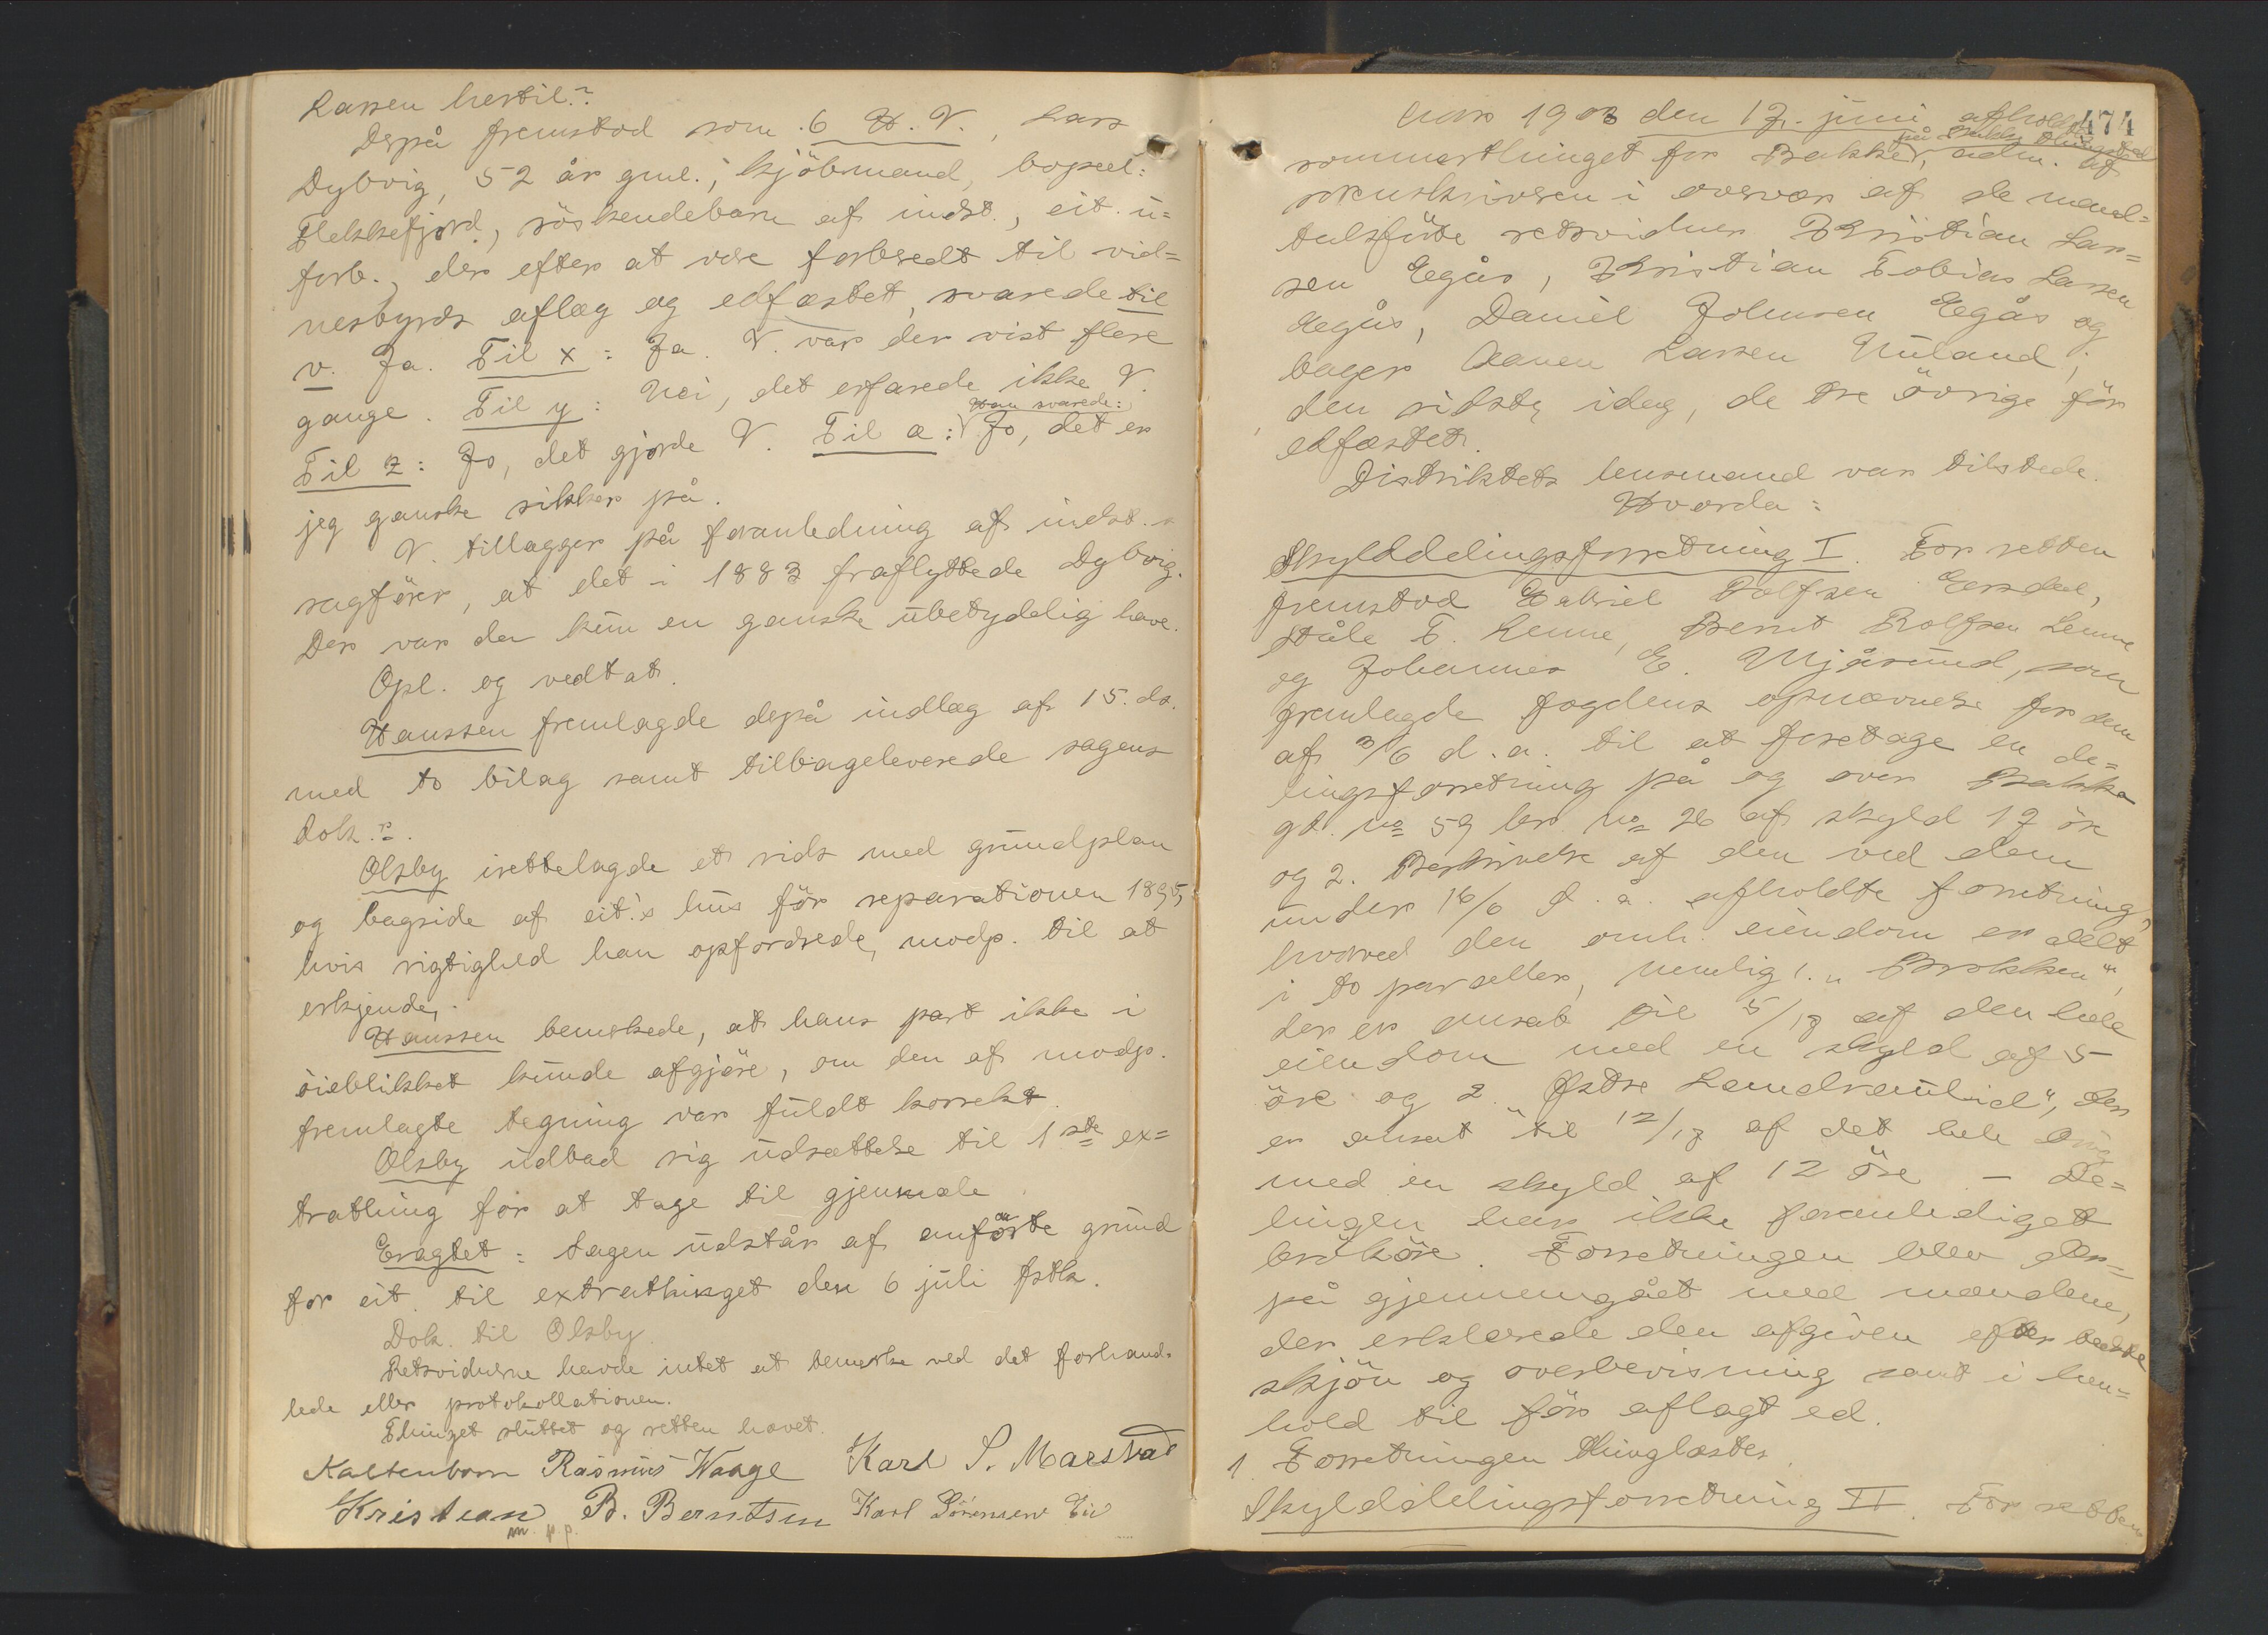 Larsen hertil?
Depå fremstod som 6 H. V., Lars
Dybvig, 52 år gml., kjöbmand, bopæl:
Flekkefjord, söskendebarn af indst., cit. u=
forb., der efter at være forberedt til vid=
nesbyrds aflæg og edfæstet, svarede til
v. Ja. Til x: Ja. V. var der vist flere
gange. Til y: Nei, det erfarede ikke V.
Til z: Jo, det gjorde V. Til æ: Han svarede: Jo, det er
jeg ganske sikker på.
V. tillægger på foranledning af indst.s
sagförer, at det i 1883 fraflyttede Dybvig.
Der var da kun en ganske ubetydelig have.
Opl. og vedtat.
Hanssen fremlagde depå indlæg af 15. ds.
med to bilag samt tilbageleverede sagens
dok.
Olsby irettelagde et rids med grundplan
og bagside af cit.s hus för reparationen 1895,
hvis rigtighed han opfordrede modp. til at
erkjende.
Hanssen bemerkede, at hans part ikke i
öieblikket kunde afgjöre, om den af modp.
fremlagte tegning var fuldt korrekt.
Olsby udbad sig udsættelse til 1ste ex=
trathing for at tage til gjenmæle.
Eragtet: Sagen udstår af anförte grund
for cit. til extrathinget den 6 juli fstk.
Dok. til Olsby.
Retsvidnerne havde intet at bemerke ved det forhand=
lede eller protokollationen.
Thinget sluttet og retten hævet.
Kaltenborn Rasmus Waage Karl S. Marstad
Kristian B. Berntsen Karl Sörensen Eie
m. p. p.
474
Aar 1903 den 17. juni afholdtes
sommerthinget for Bakke på Bakke thingsted, adm. af
sorenskriveren i overvær af de mand=
talsförte retsvidner Kristian Lar=
sen Egås, Kristian Tobias Larsen
Egås, Daniel Johnsen Egås og
bager Aanen Larsen Nuland,
den sidste idag, de tre övrige för
edfæstet.
Distriktets lensmand var tilstede.
Hvorda:
Skylddelingsforretning I. For retten
fremstod Gabriel Rolfsen Ersdal,
Ståle T. Lenne, Bernt Rolfsen Lenne
og Johannes E. Mjåsund, som
fremlagde fogdens opnævnelse for dem
af 3/6 d. a. til at foretage en de=
lingsforretning på og over Bakke
gd. No 59 br. No 26 af skyld 17 öre
og 2. Beskrivelse af den ved dem
under 16/6 d. a. afholdte forretning,
hvorved den omh. eiendom er delt
i to parseller, nemlig 1. "Brokken",
der er ansat til 5/17 af den hele
eiendom med en skyld af 5
öre og 2. "Östre Landraulid", der
er ansat til 12/17 af det hele brug
med en skyld af 12 öre – De=
lingen har ikke foranlediget
brököre. Forretningen blev der=
på gjennemgået med mændene,
der erklærede den afgiven efter bedste
skjön og overbevisning samt i hen=
hold til för aflagt ed.
1 Forretningen thinglæstes.
Skylddelingsforretning II. For retten